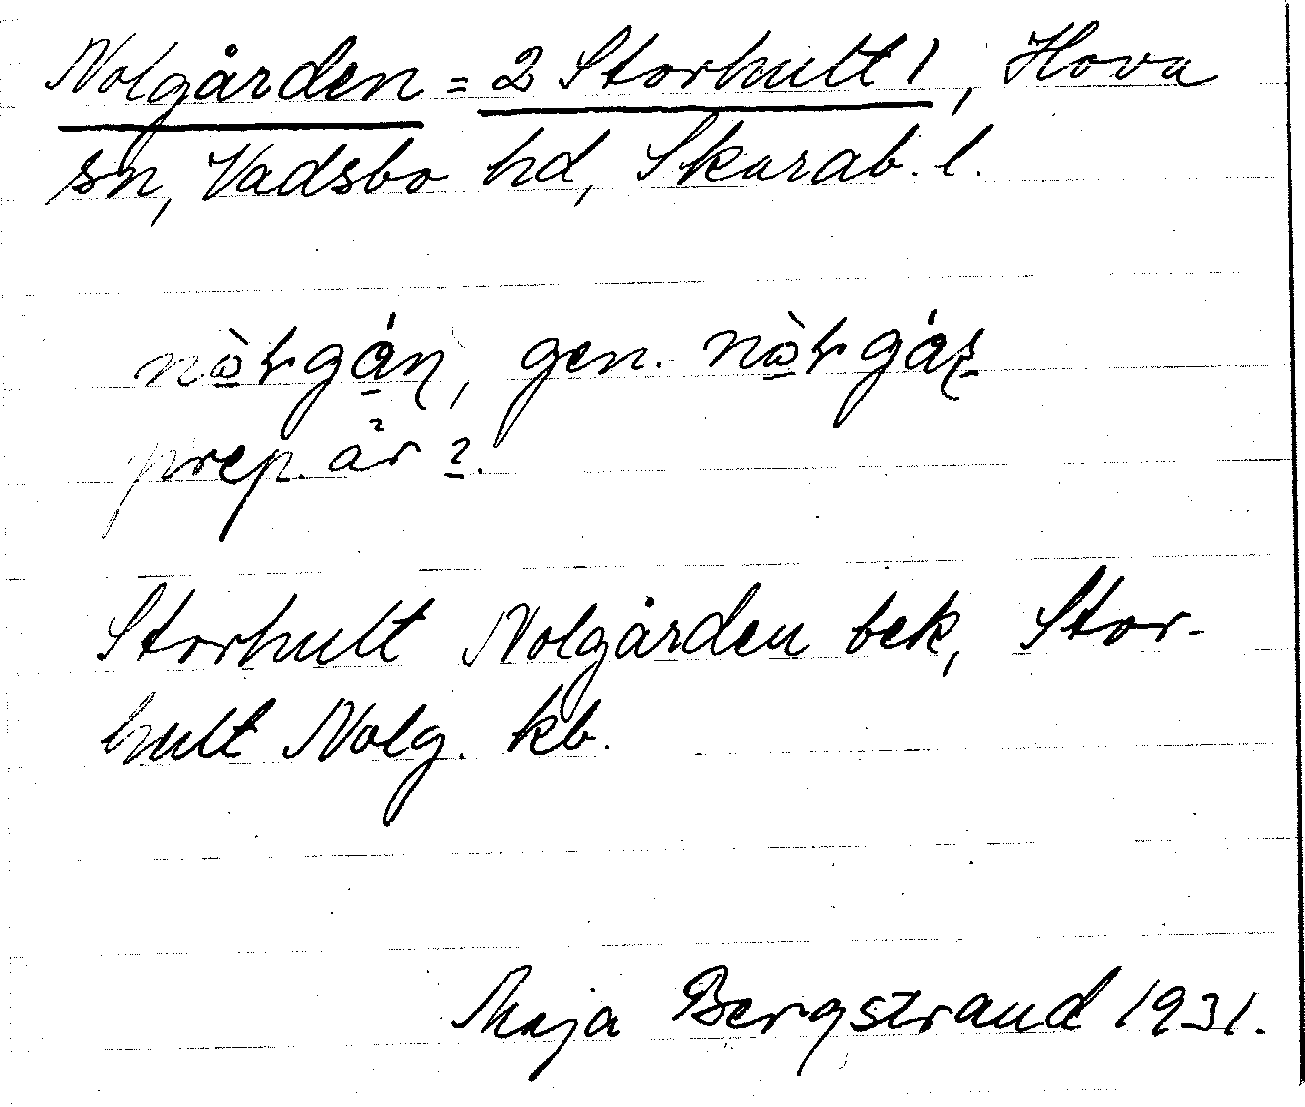 Nolgården = 2 Storhult 1, Hova
sn, Vadsbo hd, Skarab. l.
gen.
prep.
Storhult Nolgården bek, Stor-
hult Nolg. kb.
Maja Bergstrand 1931.